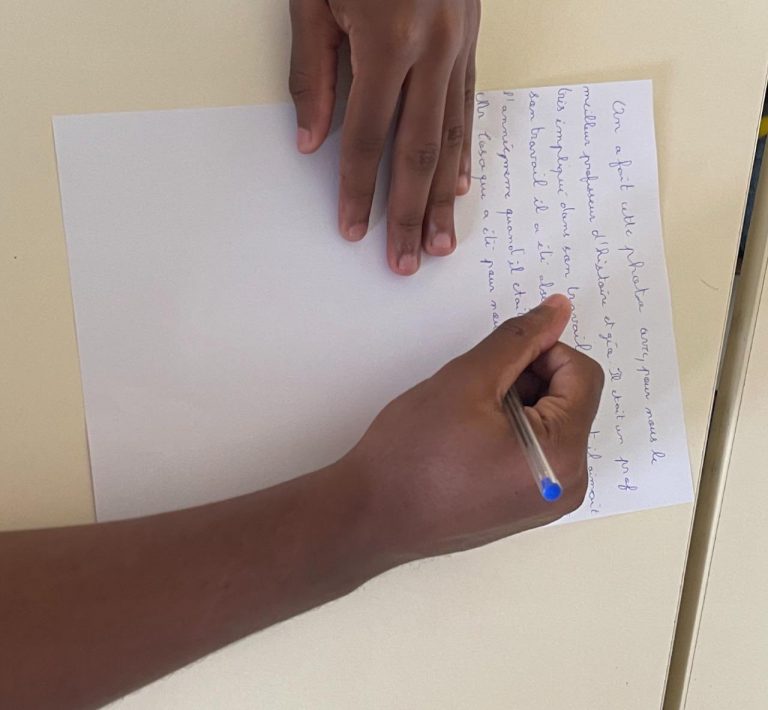 On a fait cette photo avec, pour nous le
meilleur professeur d'histoire et géo. Il était un prof
très impliqué dans son travail il aimait
son travail il a été
l'année quand il était
Mr a été pour nou